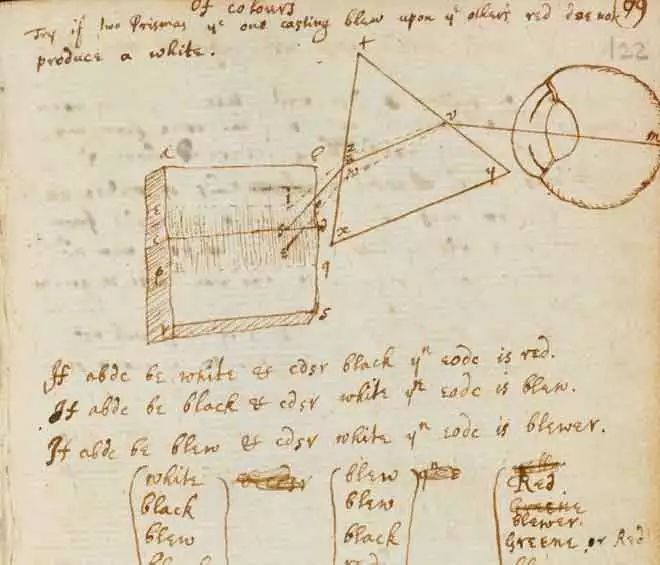 Of colours
Try if two Prismas yᵉ one casting blew upon yᵉ other's red doe not 99
produce a white. 122
t
v
m
y
x
a
q
s
r
If abdc be white & cdsr black yⁿ eodc is red.
If abdc be black & cdsr white yⁿ eodc is blew.
If abdc be blew & cdsr white yⁿ eodc is blewer.
white blew Red
black blew Greene
blew black blewer
Greene, or Red